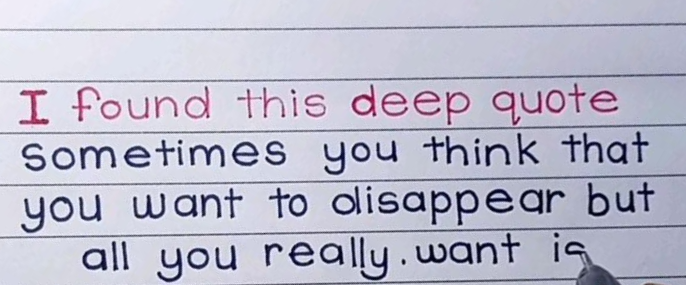 I found this deep quote
Sometimes you think that
you want to disappear but
all you really.want is